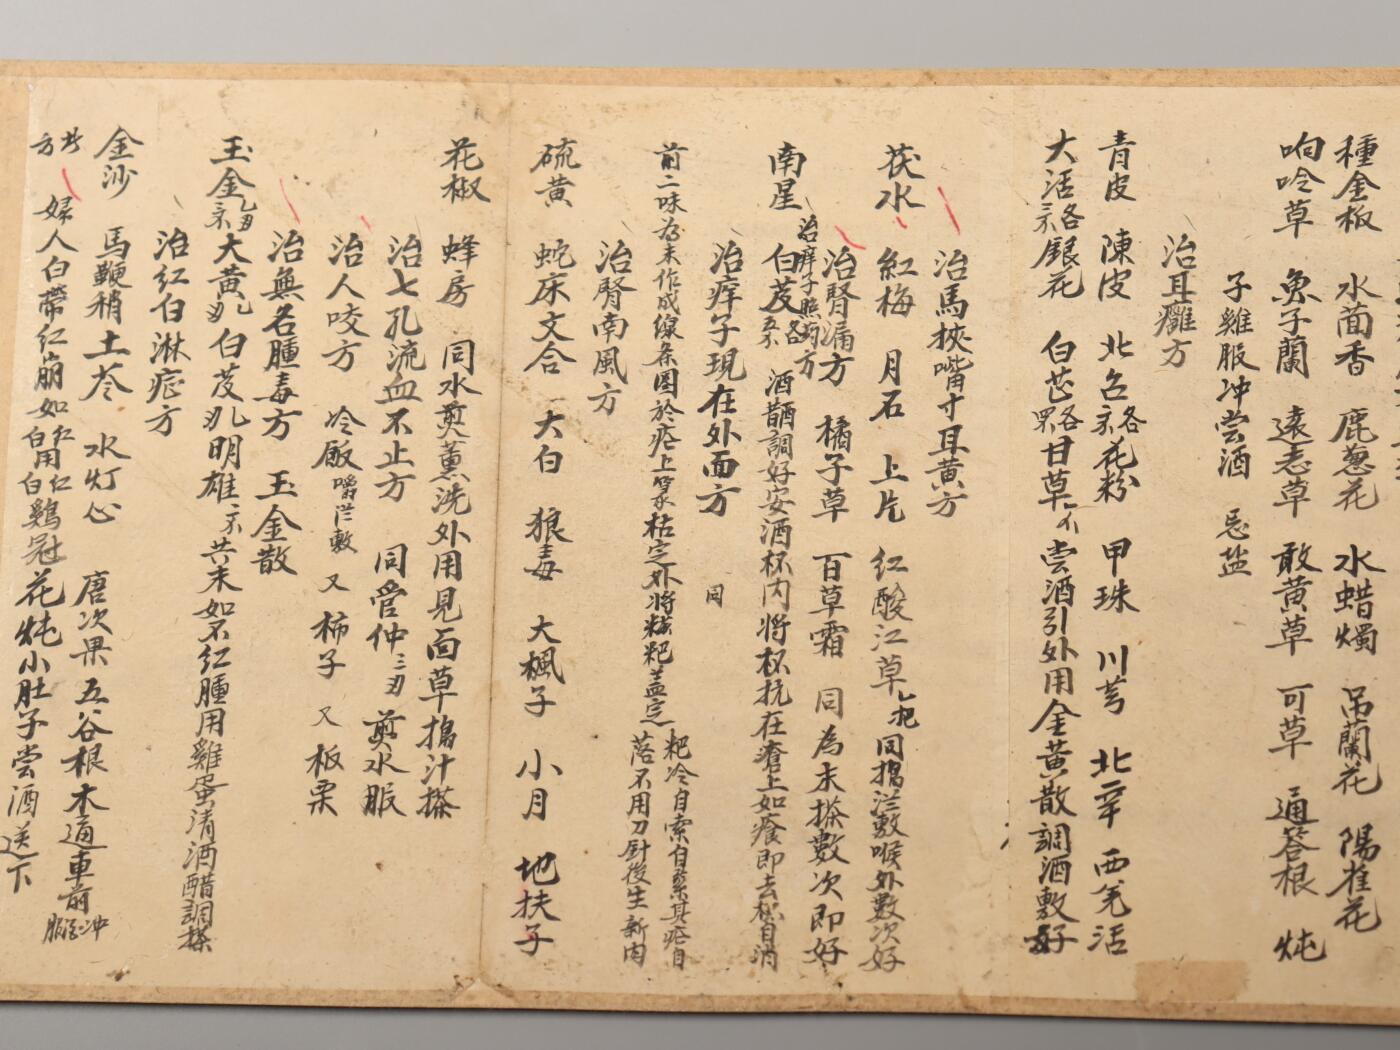 種金板 水茴香 鹿葱花 水蜡燭 吊蘭花 陽雀花
响呤草 魚子蘭 遠志草 敢黄草 可草 通答根 炖
子雞服冲尝酒 忌盐
治耳癰方
青皮 陳皮 北乞各 花粉 甲珠 川芎 北辛 西羌活
大活各 銀花 白芷各 甘草 尝酒引外用金黄散調酒敷好
治馬挾嘴寸耳黄方
茯水 紅梅 月石 上片 红酸江草一把同搗洴敷喉外數次好
治腎漏方 橘子草 百草霜 同為末搽數次即好
治痒子照药方
南星 白芨各 酒醋調好安酒杯内将杯抗在瘡上如癢即去杯自消
治痒子現在外面方 同
前二味為末作成線条圍於疮上 枯定外将粑盖定
粑冷自索自紧其疮自
落不用刀針後生新肉
治腎南風方
硫黄 蛇床文合 大白 狼毒 大楓子 小月 地扶子
花椒 蜂房 同水煎薰洗外用見面草搗汁搽
治七孔流血不止方 同管仲三刃 煎水服
治人咬方 冷飯嚼洴敷 又 柿子 又 板栗
治無名腫毒方 玉金散
玉金 大黄 白芨 明雄 共末如不红腫用雞蛋清酒醋調搽
治红白淋症方
金沙 馬鞭稍 土苓 水灯心 唐次果 五谷根 木通車前 冲酒服
又方 婦人白帶红崩如红用红白用白 鷄冠花炖小肚子尝酒送下